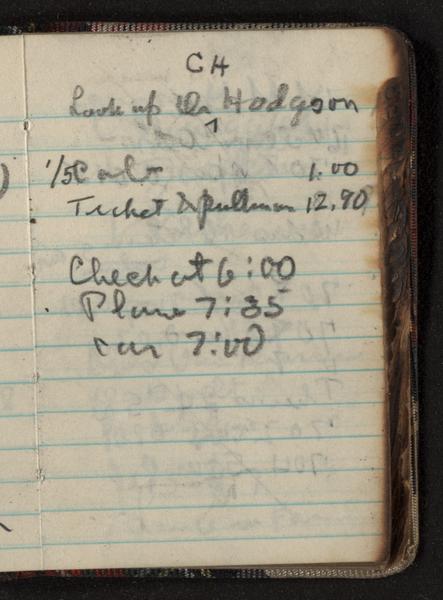 CH
Look up Dr Hodgson
1/5 Cab 1.00
Ticket & pullman 12.90
Check at 6:00
Plane 7:35
car 7:00